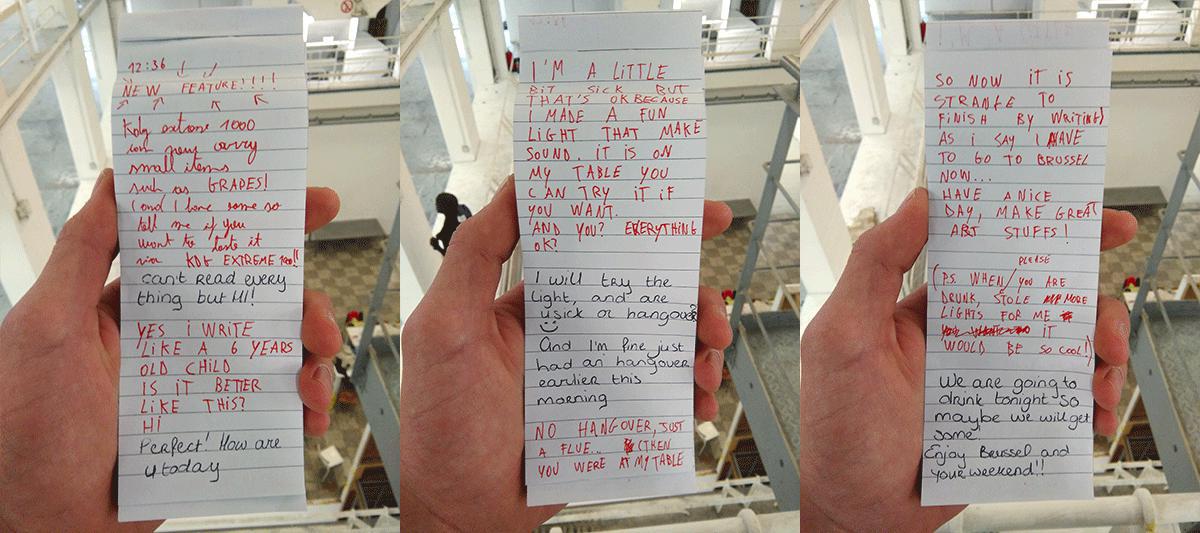 12:36
NEW FEATURE!!!!
Kdg extreme 1000
can now carry
small items
such as GRAPES!
(and I have some so
tell me if you
want to taste it
via KDG EXTREME 1000!!
can't read every
thing but HI!
YES I WRITE
LIKE A 6 YEARS
OLD CHILD
IS IT BETTER
LIKE THIS?
HI
Perfect! How are
u today
I'M A LITTLE
BIT SICK BUT
THAT'S OK BECAUSE
I MADE A FUN
LIGHT THAT MAKE
SOUND. IT IS ON
MY TABLE YOU
CAN TRY IT IF
YOU WANT.
AND YOU? EVERYTHING
OK?
I will try the
light, and are
u sick or hangover?
And I'm fine just
had an hangover
earlier this
morning
NO HANGOVER, JUST
A FLUE... (THEN
YOU WERE AT MY TABLE
SO NOW IT IS
STRANGE TO
FINISH BY WRITING)
AS I SAY I HAVE
TO GO TO BRUSSEL
NOW...
HAVE A NICE
DAY, MAKE GREAT
ART STUFFS!
PLEASE
(P.S. WHEN YOU ARE
DRUNK, STOLE MORE
LIGHTS FOR ME
IT
WOULD BE SO COOL!)
We are going to
drink tonight so
maybe we will get
some.
Enjoy Brussel and
your weekend!!